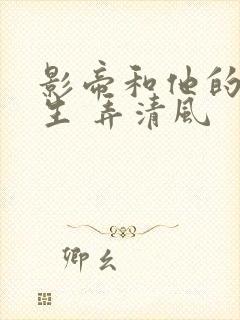 影帝和他的
生 弄清風
卿幺